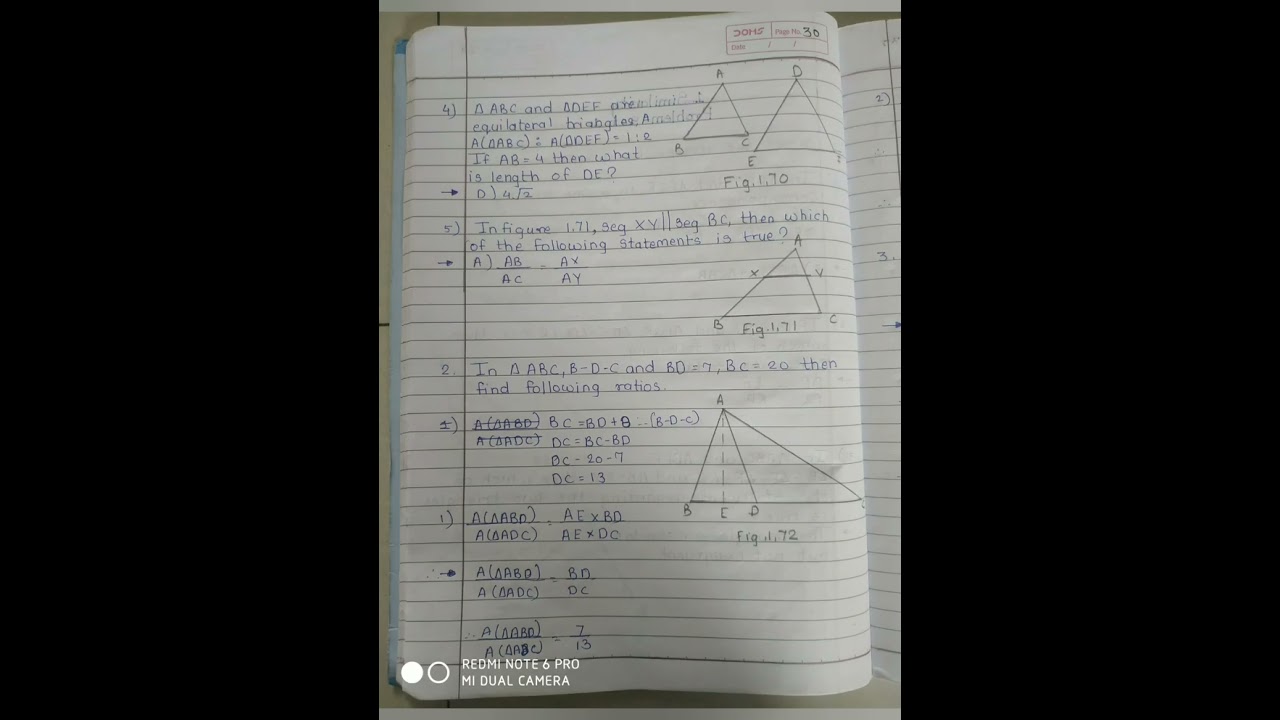 DOMS Page No. 30
Date / /
4) Δ ABC and ΔDEF are
equilateral triangles, A
A(ΔABC) : A(ΔDEF) = 1:2
If AB = 4 then what
is length of DE?
→ D) 4√2
A
B
C
D
E
Fig. 1.70
5) In figure 1.71, seg XY || seg BC, then which
of the following statements is true?
→ A) AB/AC = AX/AY
A
X
Y
B
C
Fig. 1.71
2. In Δ ABC, B-D-C and BD = 7, BC = 20 then
find following ratios.
A(ΔABD) BC = BD + D ∴ (B-D-C)
A(ΔADC) DC = BC-BD
DC - 20-7
DC = 13
A
B
E
D
Fig. 1.72
1) A(ΔABD)/A(ΔADC) = AE × BD/AE × DC
∴ → A(ΔABD)/A(ΔADC) = BD/DC
∴ A(ΔABD)/A(ΔADC) = 7/13
2)
∴
∴
3.
→
REDMI NOTE 6 PRO
MI DUAL CAMERA